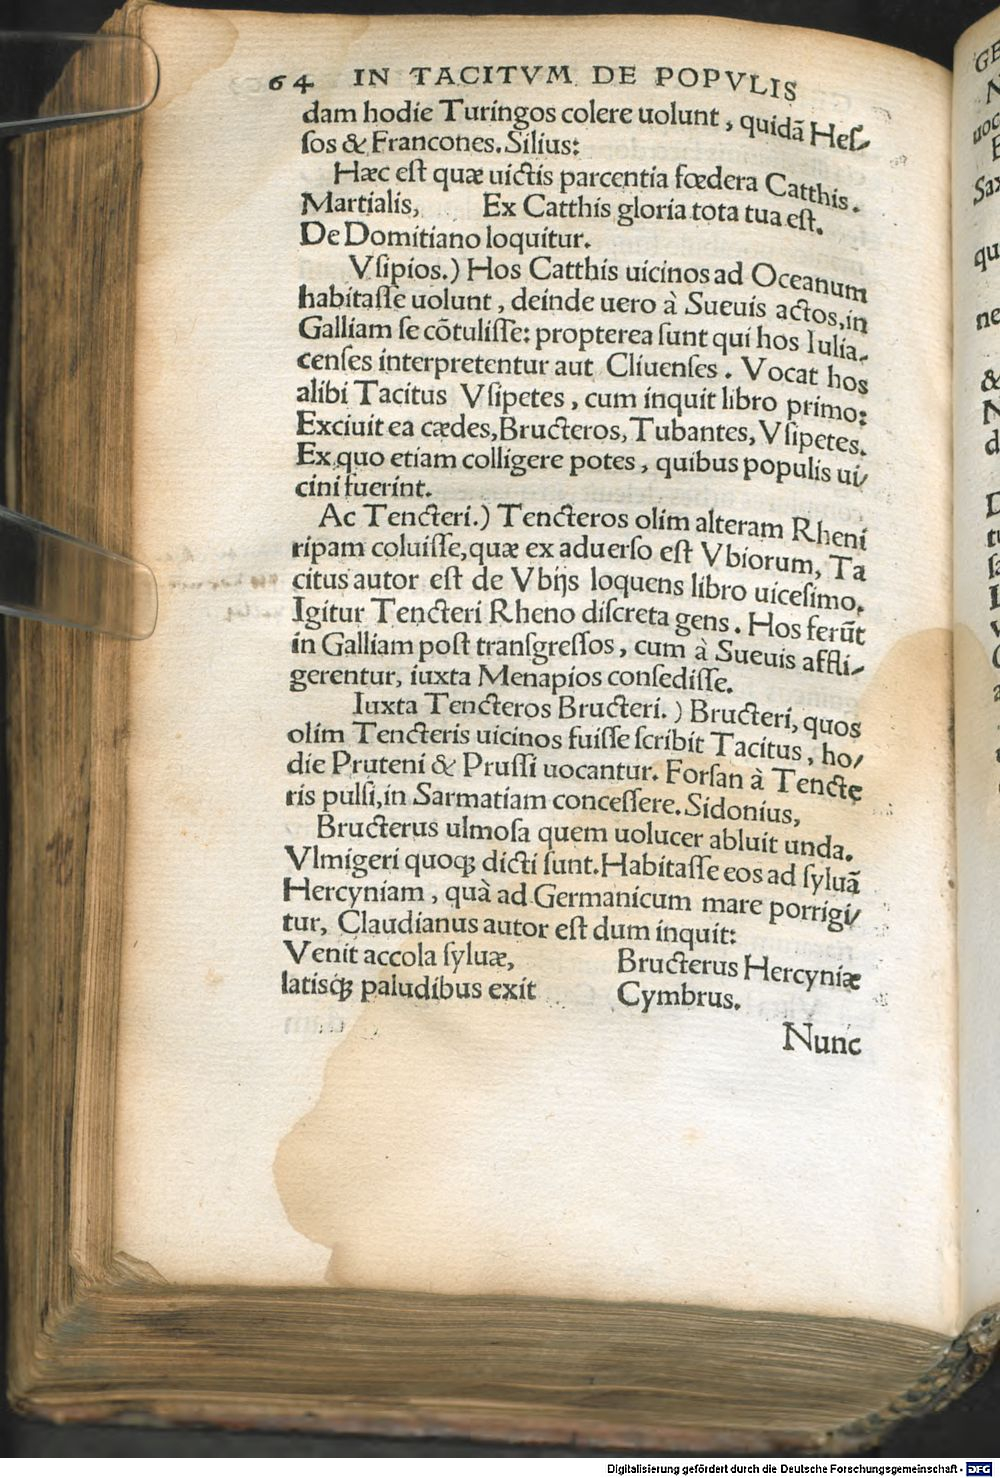 64 IN TACITVM DE POPVLIS
dam hodie Turingos colere uolunt, quidã Heſ-
ſos & Francones. Silius:
Hæc eſt quæ uictis parcentia fœdera Catthis.
Martialis, Ex Catthis gloria tota tua eſt.
De Domitiano loquitur.
Vſipios.) Hos Catthis uicinos ad Oceanum
habitaſſe uolunt, deinde uero à Sueuis actos, in
Galliam ſe cõtuliſſe: propterea ſunt qui hos Iulia-
cenſes interpretentur aut Cliuenſes. Vocat hos
alibi Tacitus Vſipetes, cum inquit libro primo:
Exciuit ea cædes, Bructeros, Tubantes, Vſipetes.
Ex quo etiam colligere potes, quibus populis ui-
cini fuerint.
Ac Tencteri.) Tencteros olim alteram Rheni
ripam coluiſſe, quæ ex aduerſo eſt Vbiorum, Ta
citus autor eſt de Vbijs loquens libro uiceſimo.
Igitur Tencteri Rheno diſcreta gens. Hos ferũt
in Galliam poſt tranſgreſſos, cum à Sueuis affli-
gerentur, iuxta Menapios conſediſſe.
Iuxta Tencteros Bructeri.) Bructeri, quos
olim Tencteris uicinos fuiſſe ſcribit Tacitus, ho-
die Pruteni & Pruſſi uocantur. Forſan à Tencte
ris pulſi, in Sarmatiam conceſſere. Sidonius,
Bructerus ulmoſa quem uolucer abluit unda.
Vlmigeri quoqꝫ dicti ſunt. Habitaſſe eos ad ſyluã
Hercyniam, quà ad Germanicum mare porrigi-
tur, Claudianus autor eſt dum inquit:
Venit accola ſyluæ, Bructerus Hercyniæ
latisqꝫ paludibus exit Cymbrus.
Nunc
Digitalisierung gefördert durch die Deutsche Forschungsgemeinschaft - DFG